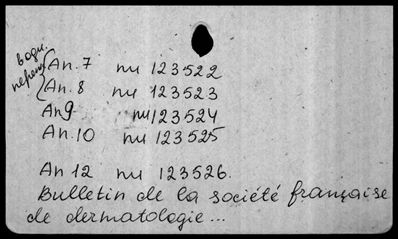 в одн.
перепл.
An. 7 nu 123522
An. 8 nu 123523
An 9 nu 123524
An. 10 nu 123525
An 12 nu 123526.
Bulletin de la société française
de dermatologie...